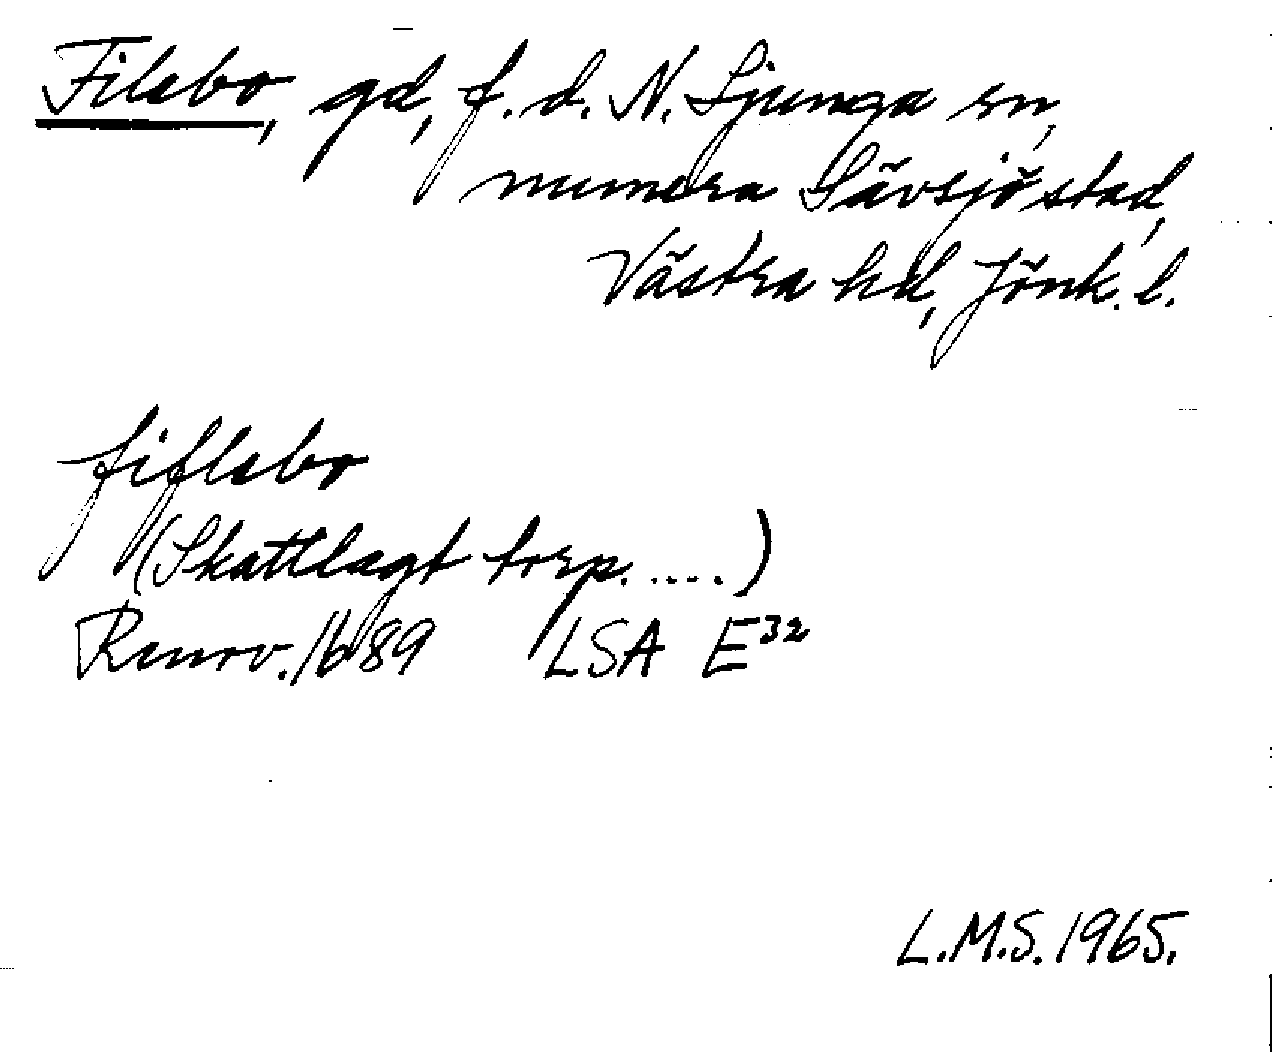 Filebo, gd, f. d. N. Ljunga sn,
numera Sävsjö stad,
Västra hd, Jönk. l.
fiflebo
(Skattlagt torp. ....)
Renov. 1689 LSA E32
L.M.S. 1965.